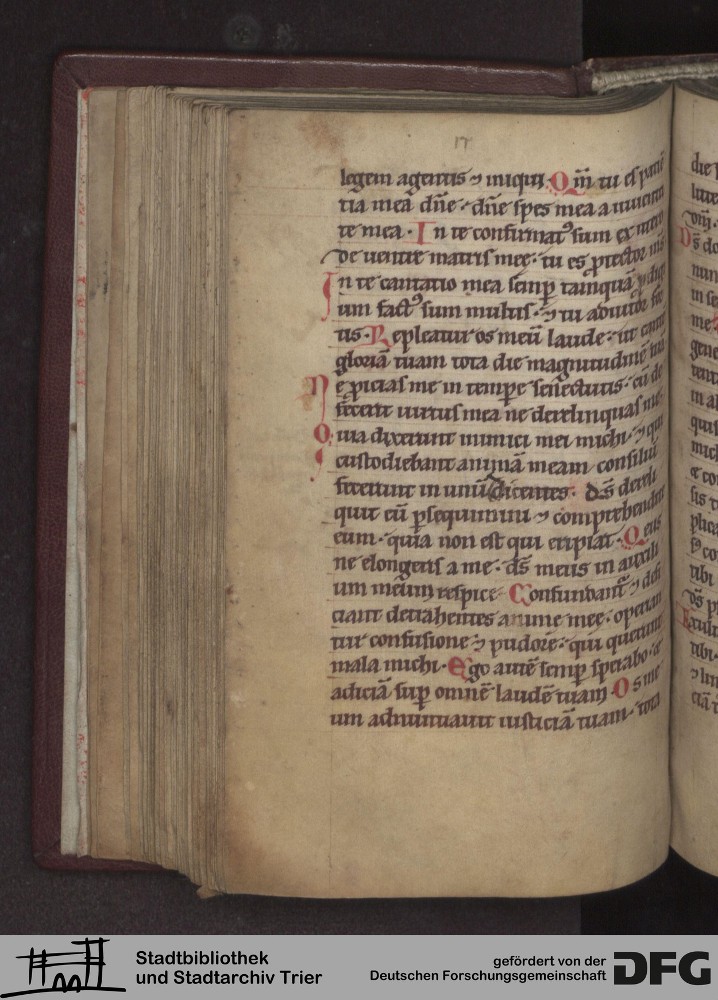 17
legem agentis ⁊ iniqui. Qm̄ tu es patiē
tia mea dn̄e. dn̄e spes mea a iuuentu
te mea. In te confirmatꝰ sum ex utero
de uentre matris meę. tu es ꝓtector mꝰ
In te cantatio mea semꝑ tamquā ꝓdigi
um factꝰ sum multis. ⁊ tu adiutor for
tis. Repleatur os meū laude. ut cante
gloriā tuam tota die magnitudinē tuā
Ne ꝓicias me in tempore senectutis. cū de
fecerit uirtus mea ne derelinquas me.
Quia dixerunt inimici mei michi. ⁊ qui
custodiebant animā meam consiliū
fecerunt in unū Dicentes. ds̄ dereli
quit eū ꝑsequimini ⁊ comprehendite
eum. quia non est qui eripiat. Deus
ne elongeris a me. ds̄ meus in auxili
um meum respice. Confundant᷑ ⁊ defi
ciant detrahentes anime mee. operian
tur confusione ⁊ pudore. qui querunt
mala michi. Ego autē semꝑ sperabo. ⁊
adiciā suꝑ omnē laudē tuam. Os me
um adnuntiauit iusticiā tuam. tota
Stadtbibliothek
und Stadtarchiv Trier
gefördert von der
Deutschen Forschungsgemeinschaft
DFG